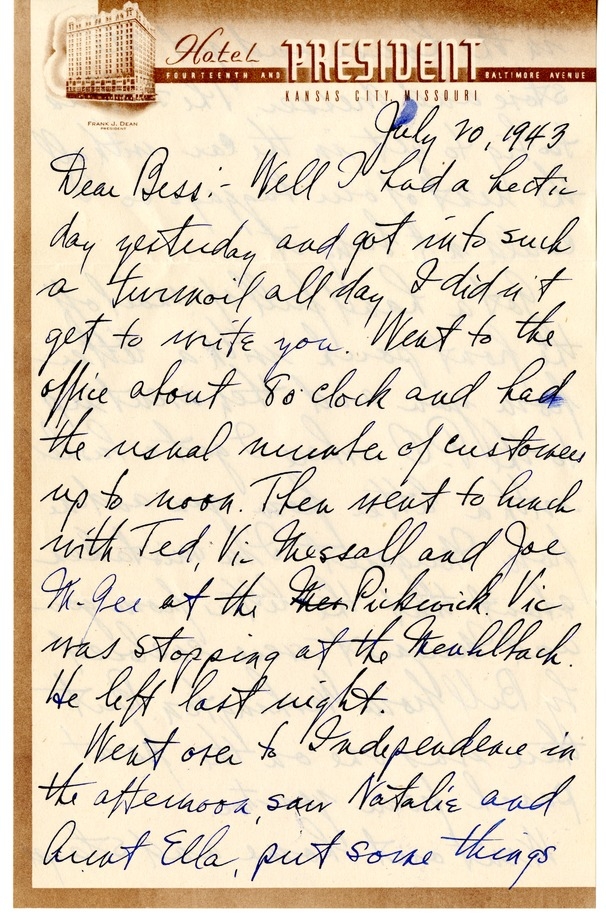 Hotel PRESIDENT
FOURTEENTH AND BALTIMORE AVENUE
KANSAS CITY, MISSOURI
FRANK J. DEAN
PRESIDENT
July 20, 1943
Dear Bess:- Well I had a hectic
day yesterday and got into such
a turmoil all day I didn't
get to write you. Went to the
office about 8 o'clock and had
the usual number of customers
up to noon. Then went to lunch
with Ted, Vic Messall and Joe
McGee at the Pickwick. Vic
was stopping at the Meuhlbach.
He left last night.
Went over to Independence in
the afternoon, saw Natalie and
Aunt Ella, put some things